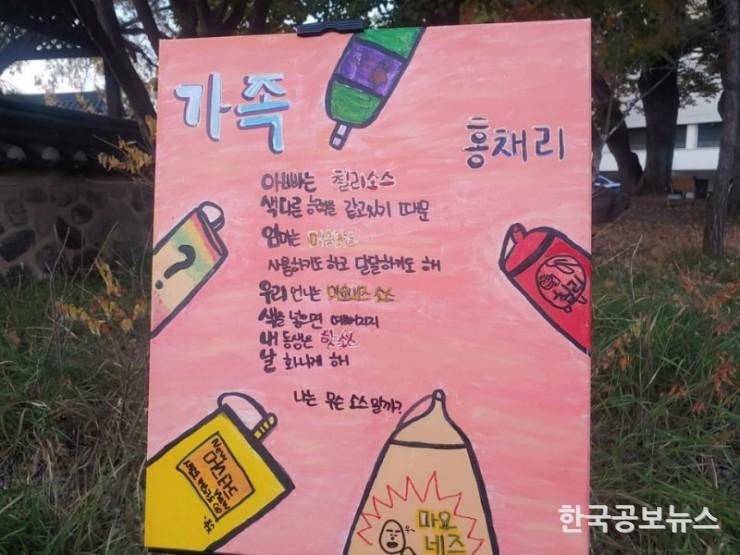 가족
홍채리
아빠는 칠리소스
색다른 능력을 갖고있기 때문
엄마는
사용하기도 하고 달달하기도 해
우리 언니는 마요네즈 소스
색을 넣으면
내 동생은 핫소스
날 화나게 해
나는 무슨 소스 일까?
?
New
머스타드
마요
네즈
한국공보뉴스